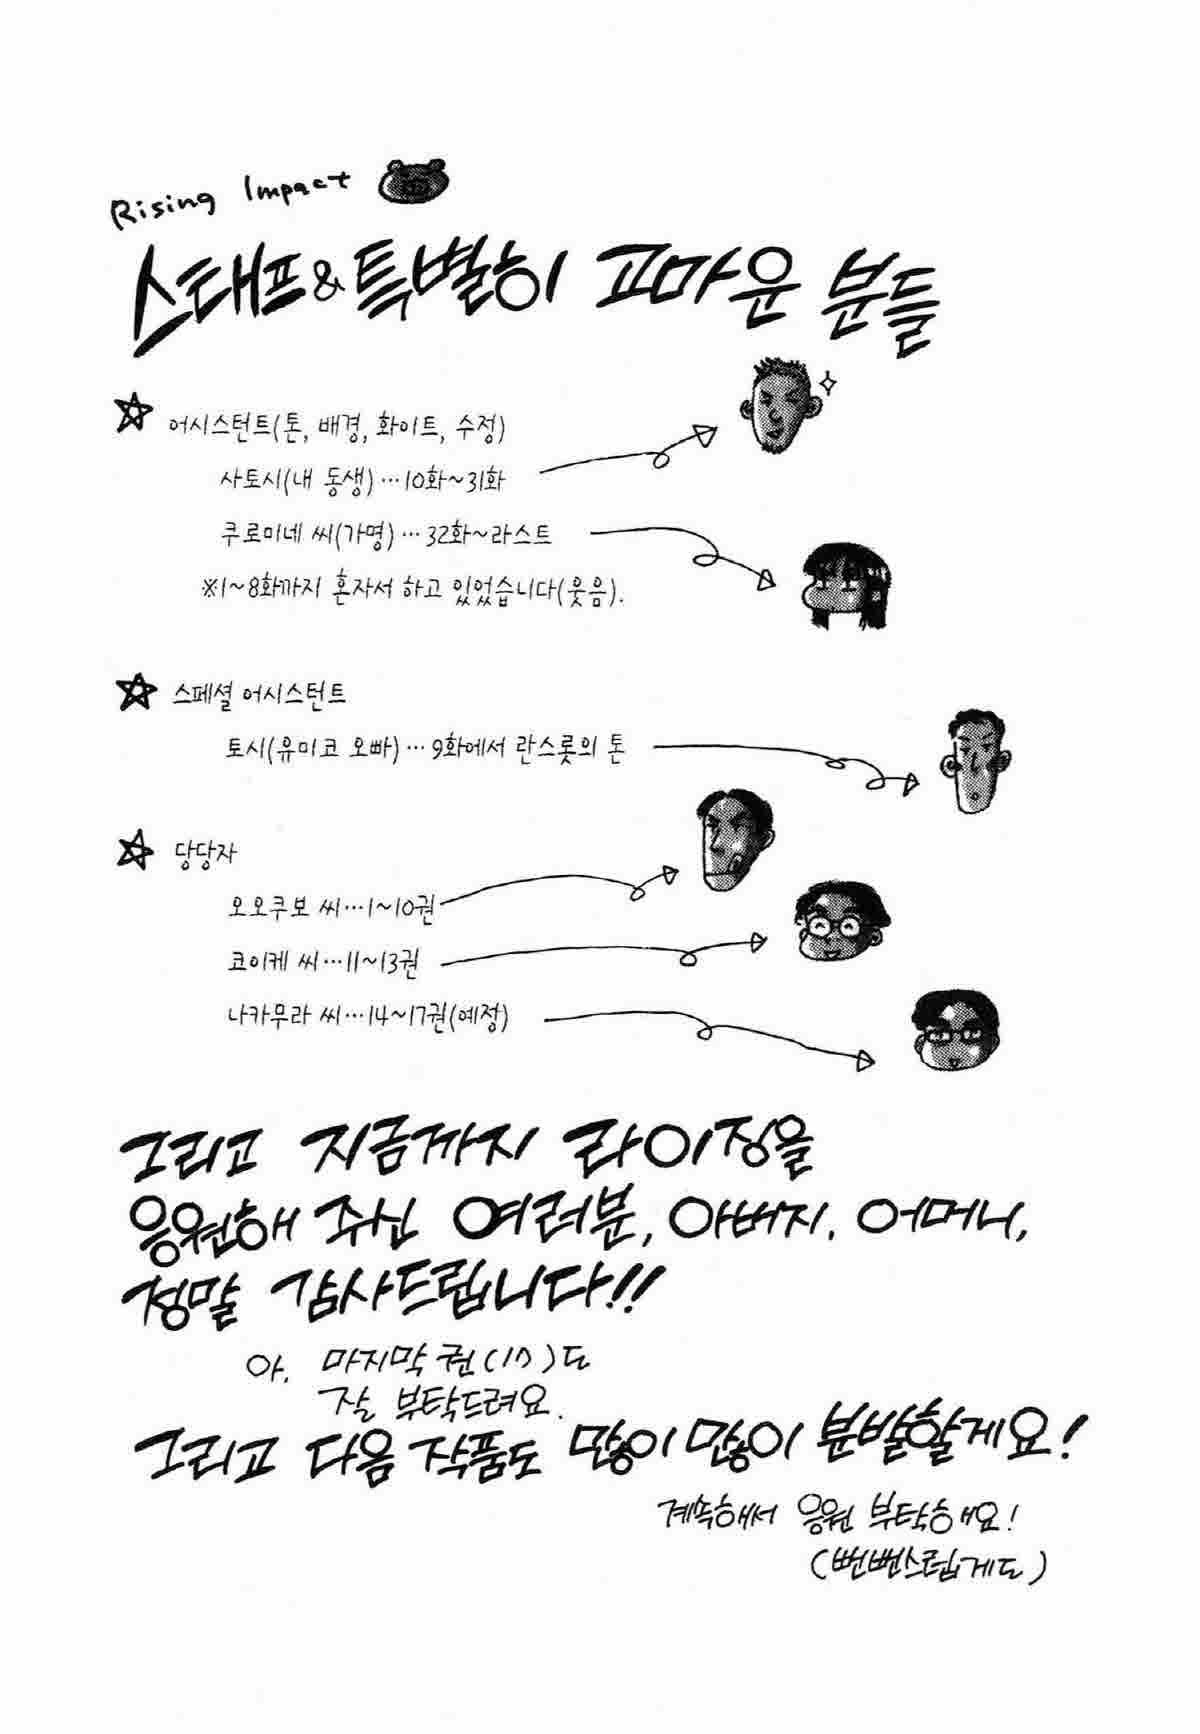 Rising Impact
스태프&특별히 고마운 분들
어시스턴트(톤, 배경, 화이트, 수정)
사토시(내 동생)…10화~31화
쿠로미네 씨(가명)…32화~라스트
※1~8화까지 혼자서 하고 있었습니다(웃음).
스페셜 어시스턴트
토시(유미코 오빠)…9화에서 란스롯의 톤
당당자
오오쿠보 씨…1~10권
코이케 씨…11~13권
나카무라 씨…14~17권(예정)
그리고 지금까지 라이징을
응원해 주신 여러분, 아버지, 어머니,
정말 감사드립니다!!
아, 마지막 권(17)도
잘 부탁드려요.
그리고 다음 작품도 많이많이 분발할게요!
계속해서 응원 부탁해요!
(뻔뻔스럽게도)